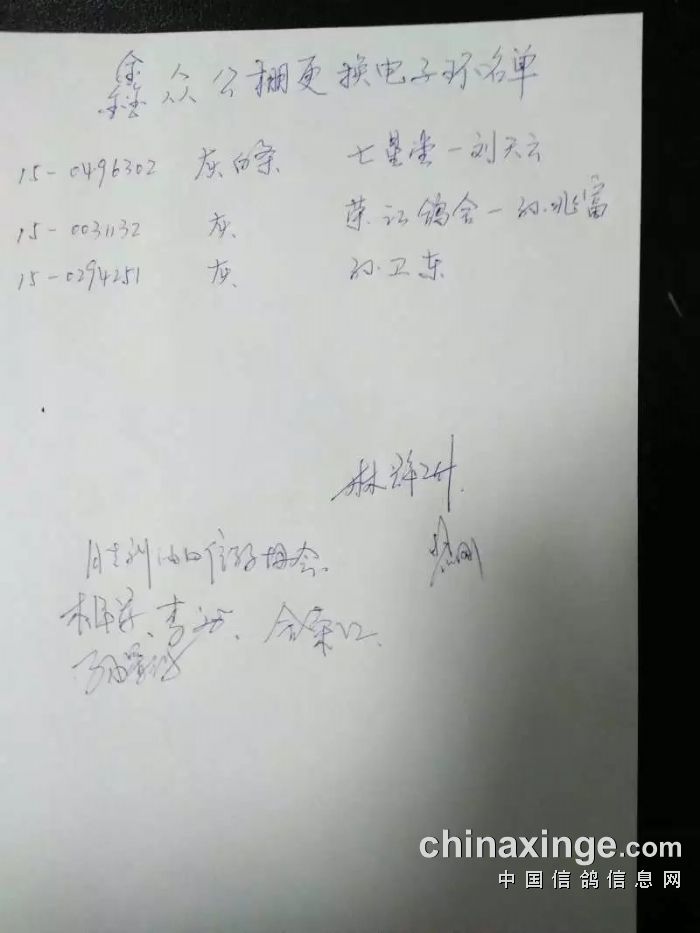 鑫众公棚更换电子环名单
15-0496302 灰白条 七星堂-刘天云
15-0031132 灰 荣江鸽舍-孙兆富
15-0294251 灰 孙卫东
胜利油田信鸽协会
chinaxinge.com
中国信鸽信息网